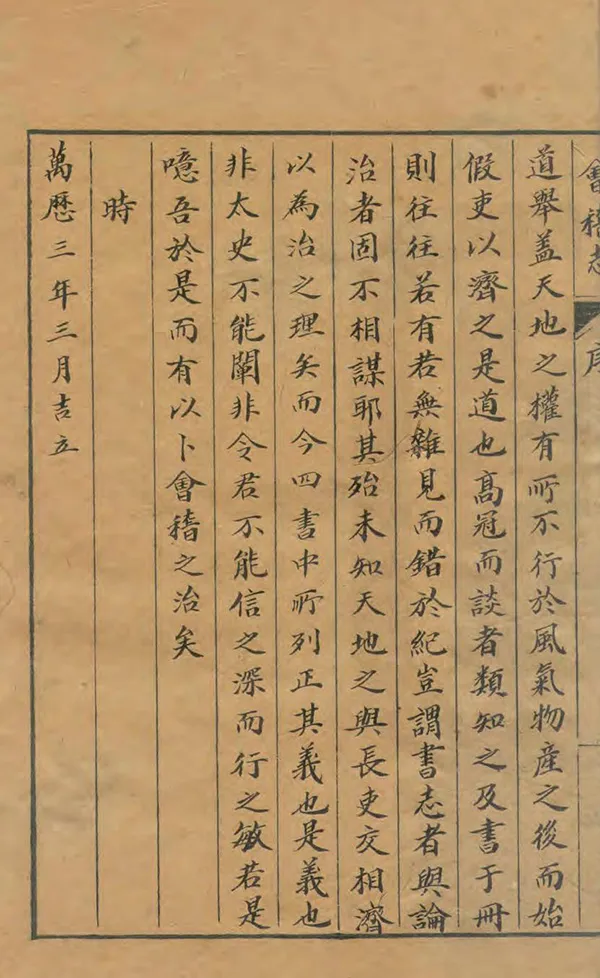 會稽志
序
道舉盖天地之權有所不行於風氣物産之後而始
假吏以濟之是道也髙冠而談者類知之及書于冊
則往往若有若無雜見而錯於紀豈謂書志者與論
治者固不相謀耶其殆未知天地之與長吏交相濟
以為治之理矣而今四書中所列正其義也是義也
非太史不能闡非令君不能信之深而行之敏若是
噫吾於是而有以卜會稽之治矣
時
萬歷三年三月吉立